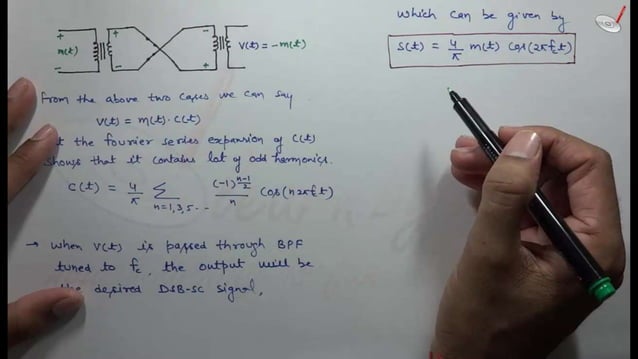 + + + +
m(t) V(t) = -m(t)
- - - -
From the above two cases we can say
V(t) = m(t) · C(t)
the fourier series expansion of C(t)
shows that it contains lot of odd harmonics.
C(t) = 4/π Σ n=1,3,5... (-1)^((n-1)/2)/n cos(n2πfct)
→ when V(t) is passed through BPF
tuned to fc, the output will be
the desired DSB-SC signal.
which can be given by
S(t) = 4/π m(t) cos(2πfct)